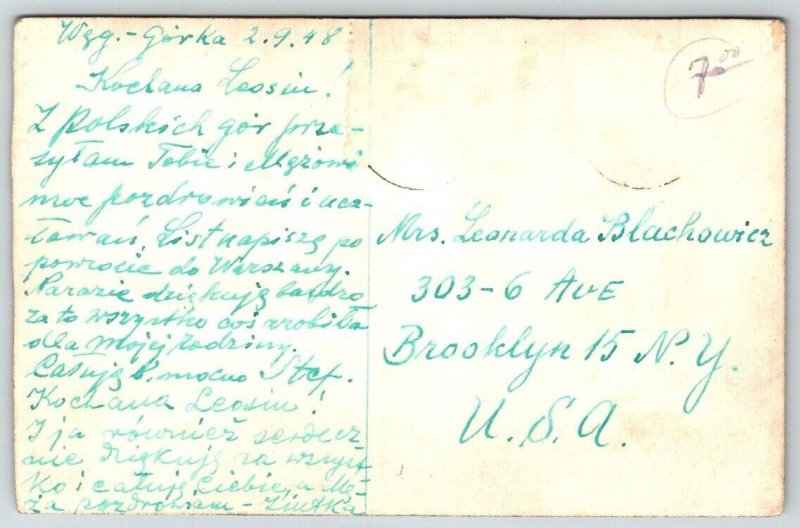 Wzg.-Górka 2.9.48
Kochana Leosiu!
Z Polskich gór prze-
syłam Tobie i Mężowi
moc pozdrowień i uca-
łowań. List napiszę po
powrocie do Warszawy.
Narazie dziękuję bardzo
za to wszystko coś zrobiła
dla mojej rodziny.
Całuję b. mocno Stef.
Kochana Leosiu!
I ja również serdecz-
nie dziękuję za wszyst-
ko i całuję Ciebie, a Mę-
ża pozdrawiam - Ziutka
7.00
Mrs. Leonarda Blachowicz
303-6 AvE
Brooklyn 15 N.Y.
U.S.A.